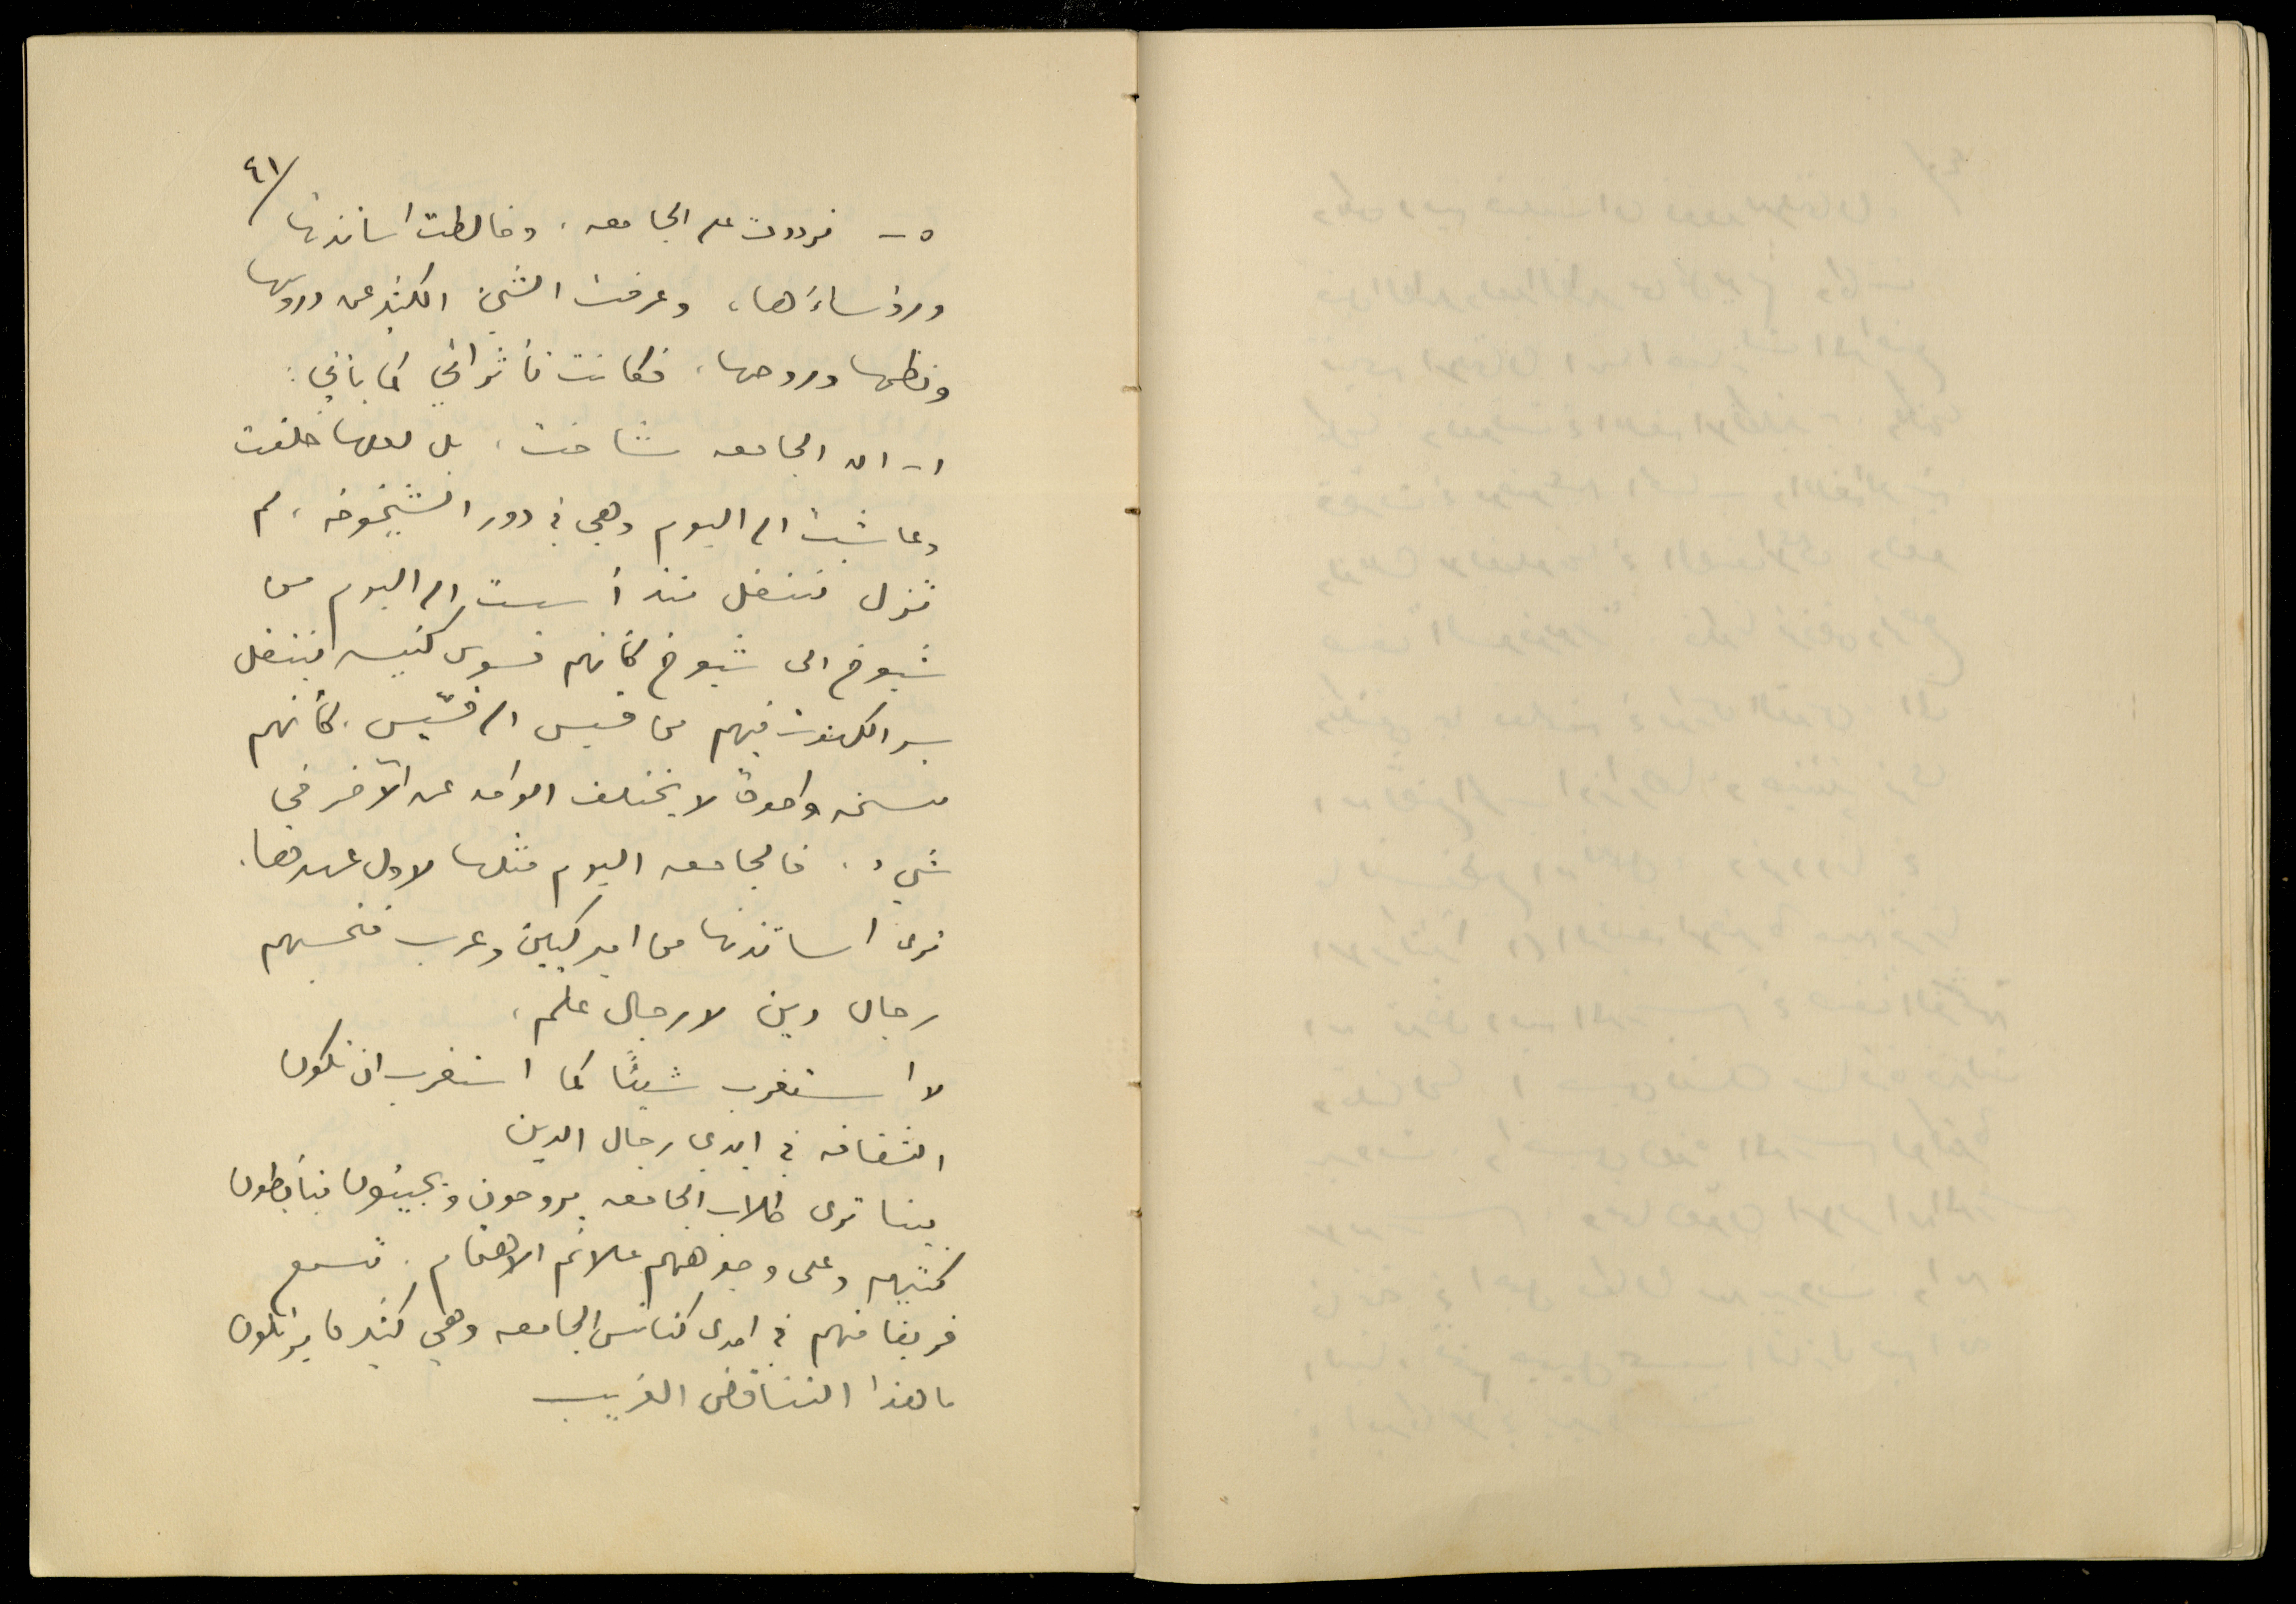 ٤١/
٥- ترددت على الجامعه، وخالطت اساتذتها
ورؤساءَها، وعرفت الشيْ الكثير عن دروسها
ونظمها وروحها، فكانت تأثراتي كما يأتي:
١- ان الجامعه شاخت، بل لعلها خلقت
وعاشت الى اليوم وهي في دور الشيخوخه، لم
تزل تنتقل منذ أسست الى اليوم من
شيوخ الى شيوخ كأنهم قسوس كنيسه ينتقل
سر الكهنوت فيهم من قسيس الى قسّيس. كأنهم
نسخه واحدة لا يختلف الواحد عن الآخر في
شيء. فالجامعه اليوم مثلها لاول عهدها.
ترى اساتذتها من اميركيين وعرب فتحسبهم
رجال دين لا رجال علم،
لا استغرب شيئًا كما استغرب ان تكون
الثقافه في ايدي رجال الدين
بينا ترى طلاب الجامعه يروحون ويجيئون يتأبطون
كتبهم وعلى وجوههم علائم الاهتمام. تسمع
فريقا منهم في احدى كنائس الجامعه وهي كثيره يرتلون
ما هذا التناقض الغريب